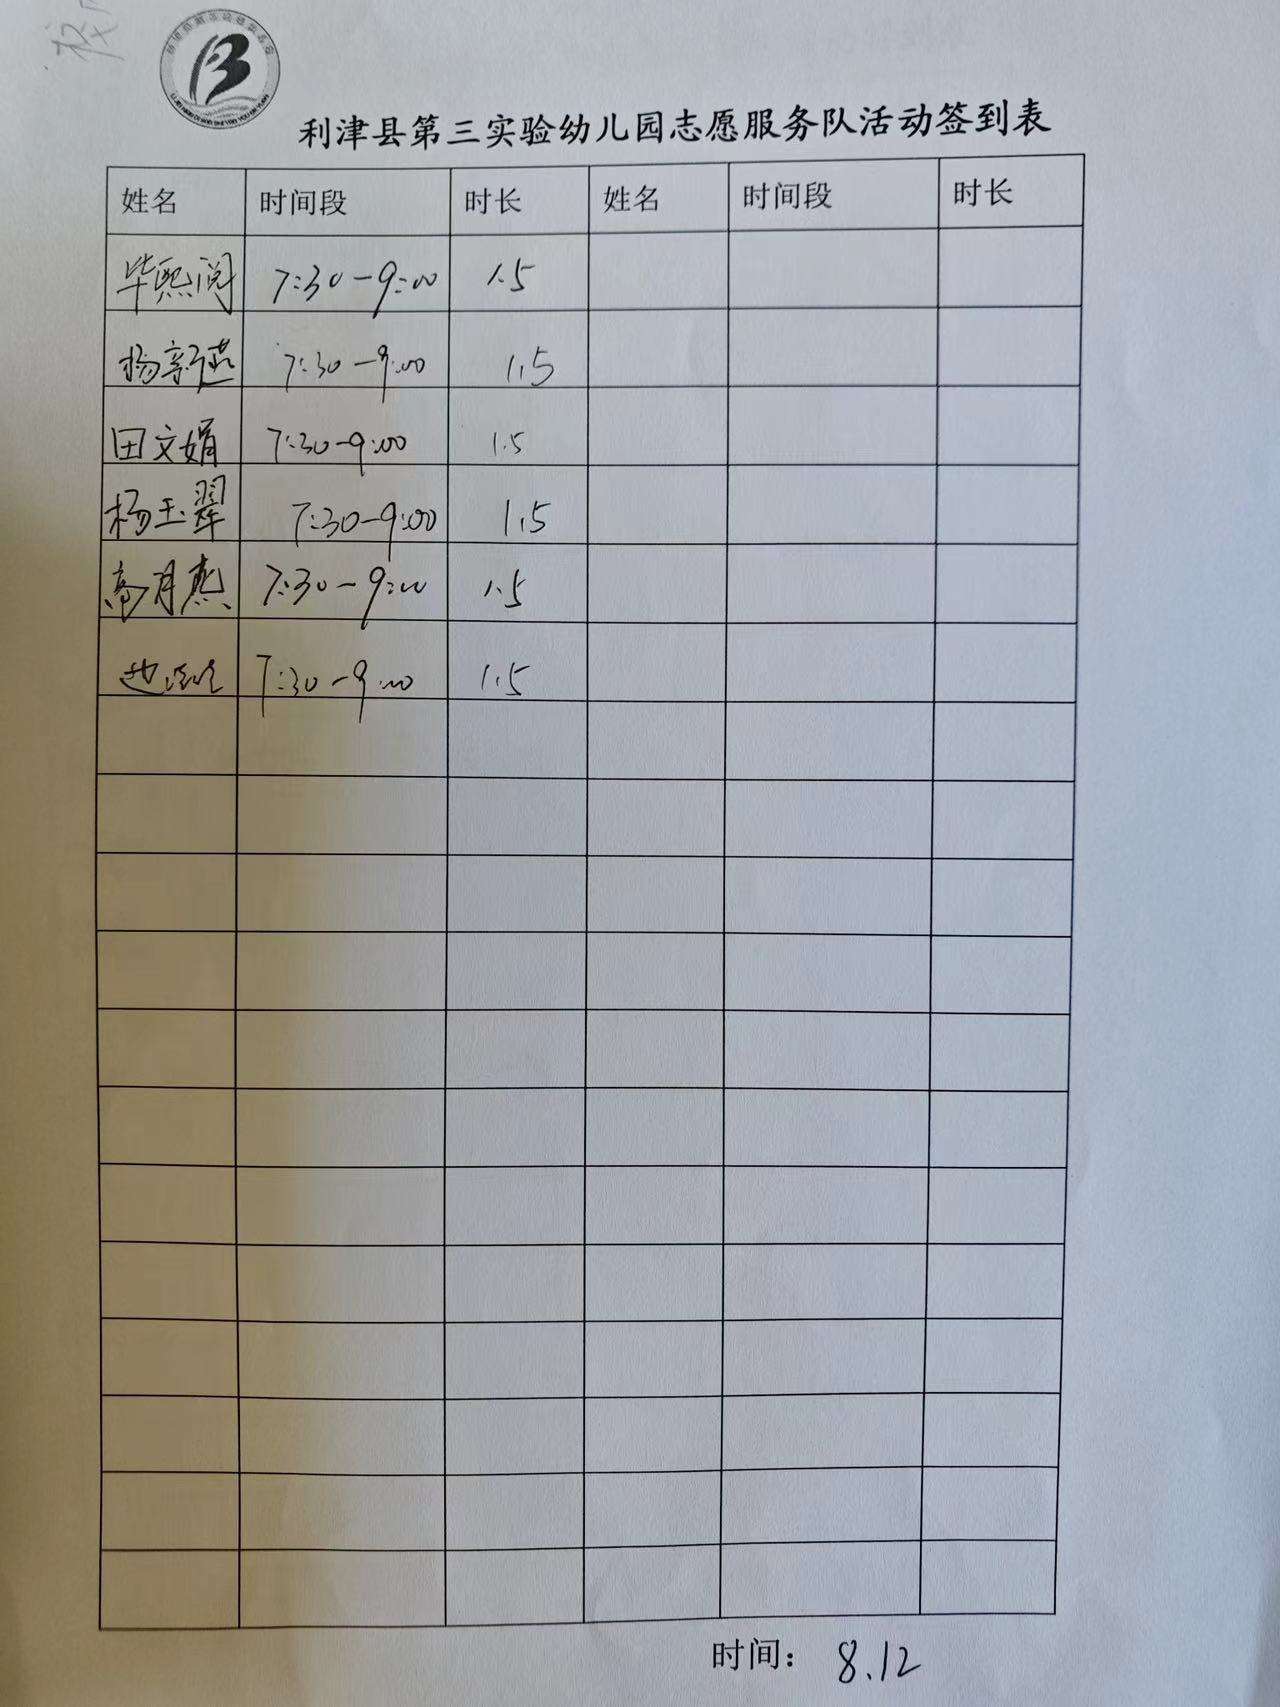 利津县第三实验幼儿园志愿服务队活动签到表
姓名 时间段 时长 姓名 时间段 时长
毕熙阅 7:30-9:00 1.5
杨新燕 7:30-9:00 1.5
田文娟 7:30-9:00 1.5
杨玉翠 7:30-9:00 1.5
高月燕 7:30-9:00 1.5
7:30-9:00 1.5
时间： 8.12